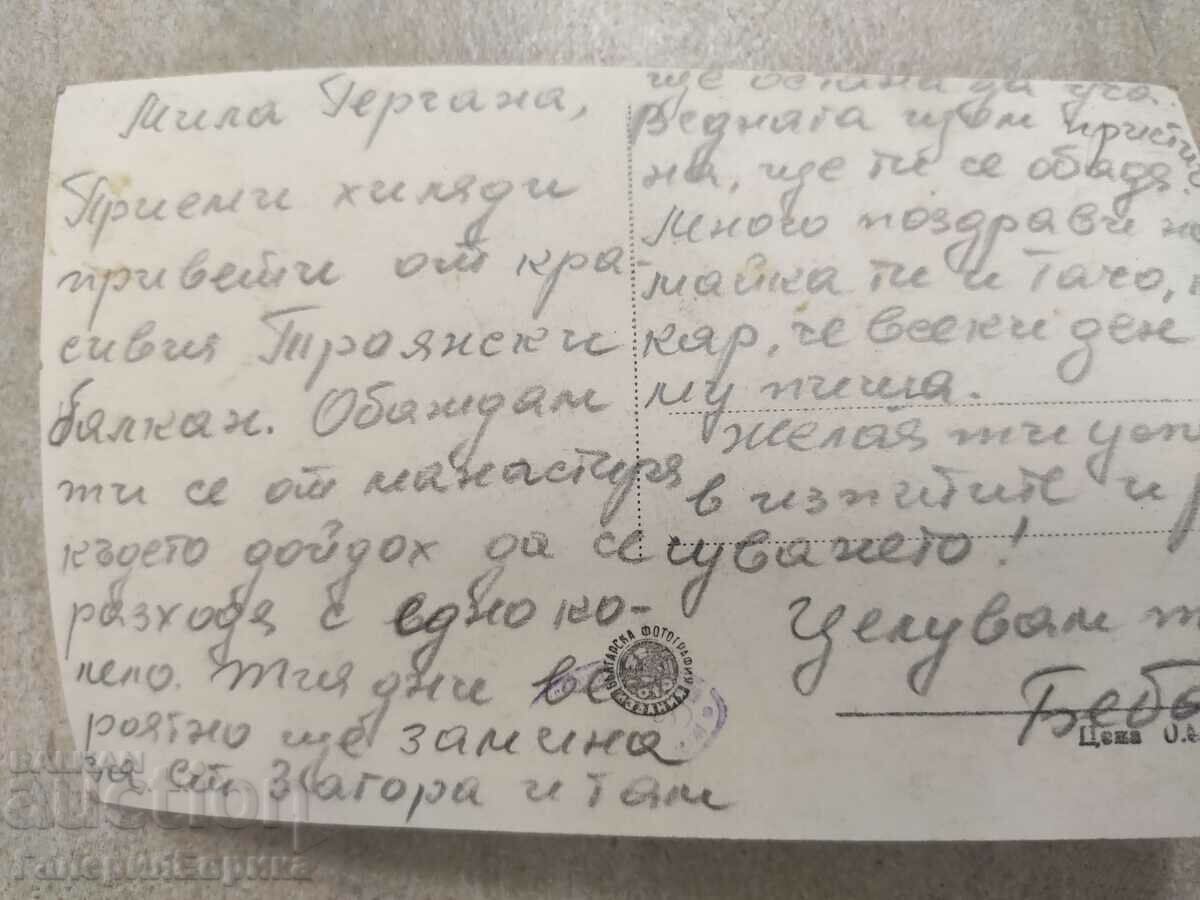 Мила Гергана,
Приеми хиляди
привети от кра-
сивия Троянски
балкан. Обаждам
ти се от манастиря
където дойдох да се
разходя с едно ко-
лело. Тия дни ве-
роятно ще замина
за Ст. Загора и там
ще остана да уча.
Веднага щом пристиг-
на, ще ти се обадя.
Много поздрави на
майка ти и Тачо,
кар, че всеки ден
му пиша.
Желая ти
в изпитите и
суването!
Целувам
Беба
БЪЛГАРСКА ФОТОГРАФИЯ
Цена 0.
BALKAN
auction
Галерия Еврика